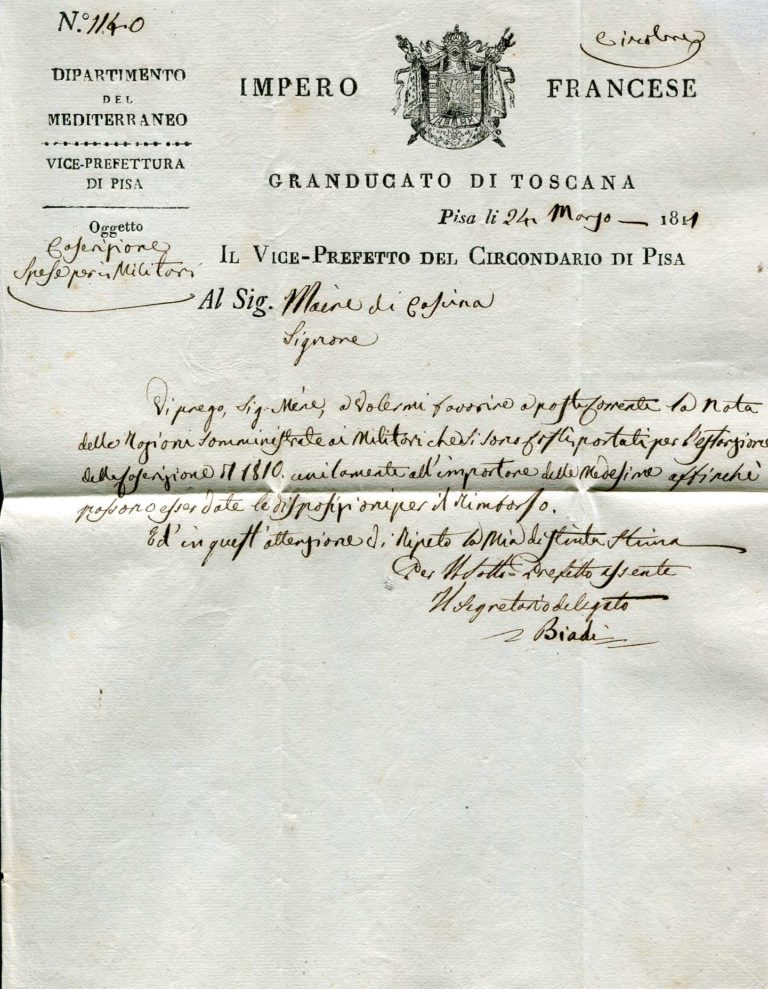 N.° 1140
Circolare
DIPARTIMENTO
DEL
MEDITERRANEO
VICE-PREFETTURA
DI PISA
IMPERO FRANCESE
GRANDUCATO DI TOSCANA
Pisa li 24 Marzo 1811
Oggetto
Coscrizione
Spese per i Militari
IL VICE-PREFETTO DEL CIRCONDARIO DI PISA
Al Sig. Maire di Cascina
Signore
Vi prego, Sig. Mere, a volermi favorire a posta corrente la Nota
delle Razioni somministrate ai Militari che si sono costì portati per l'
della Coscrizione del 1810. unitamente all'importare delle Medesime affinchè
possono esser date le disposizioni per il Rimborso.
Ed in quest'attenzione Vi Ripeto la Mia distinta stima
Per il Sotto-Prefetto assente
Il Segretario delegato
Biadi